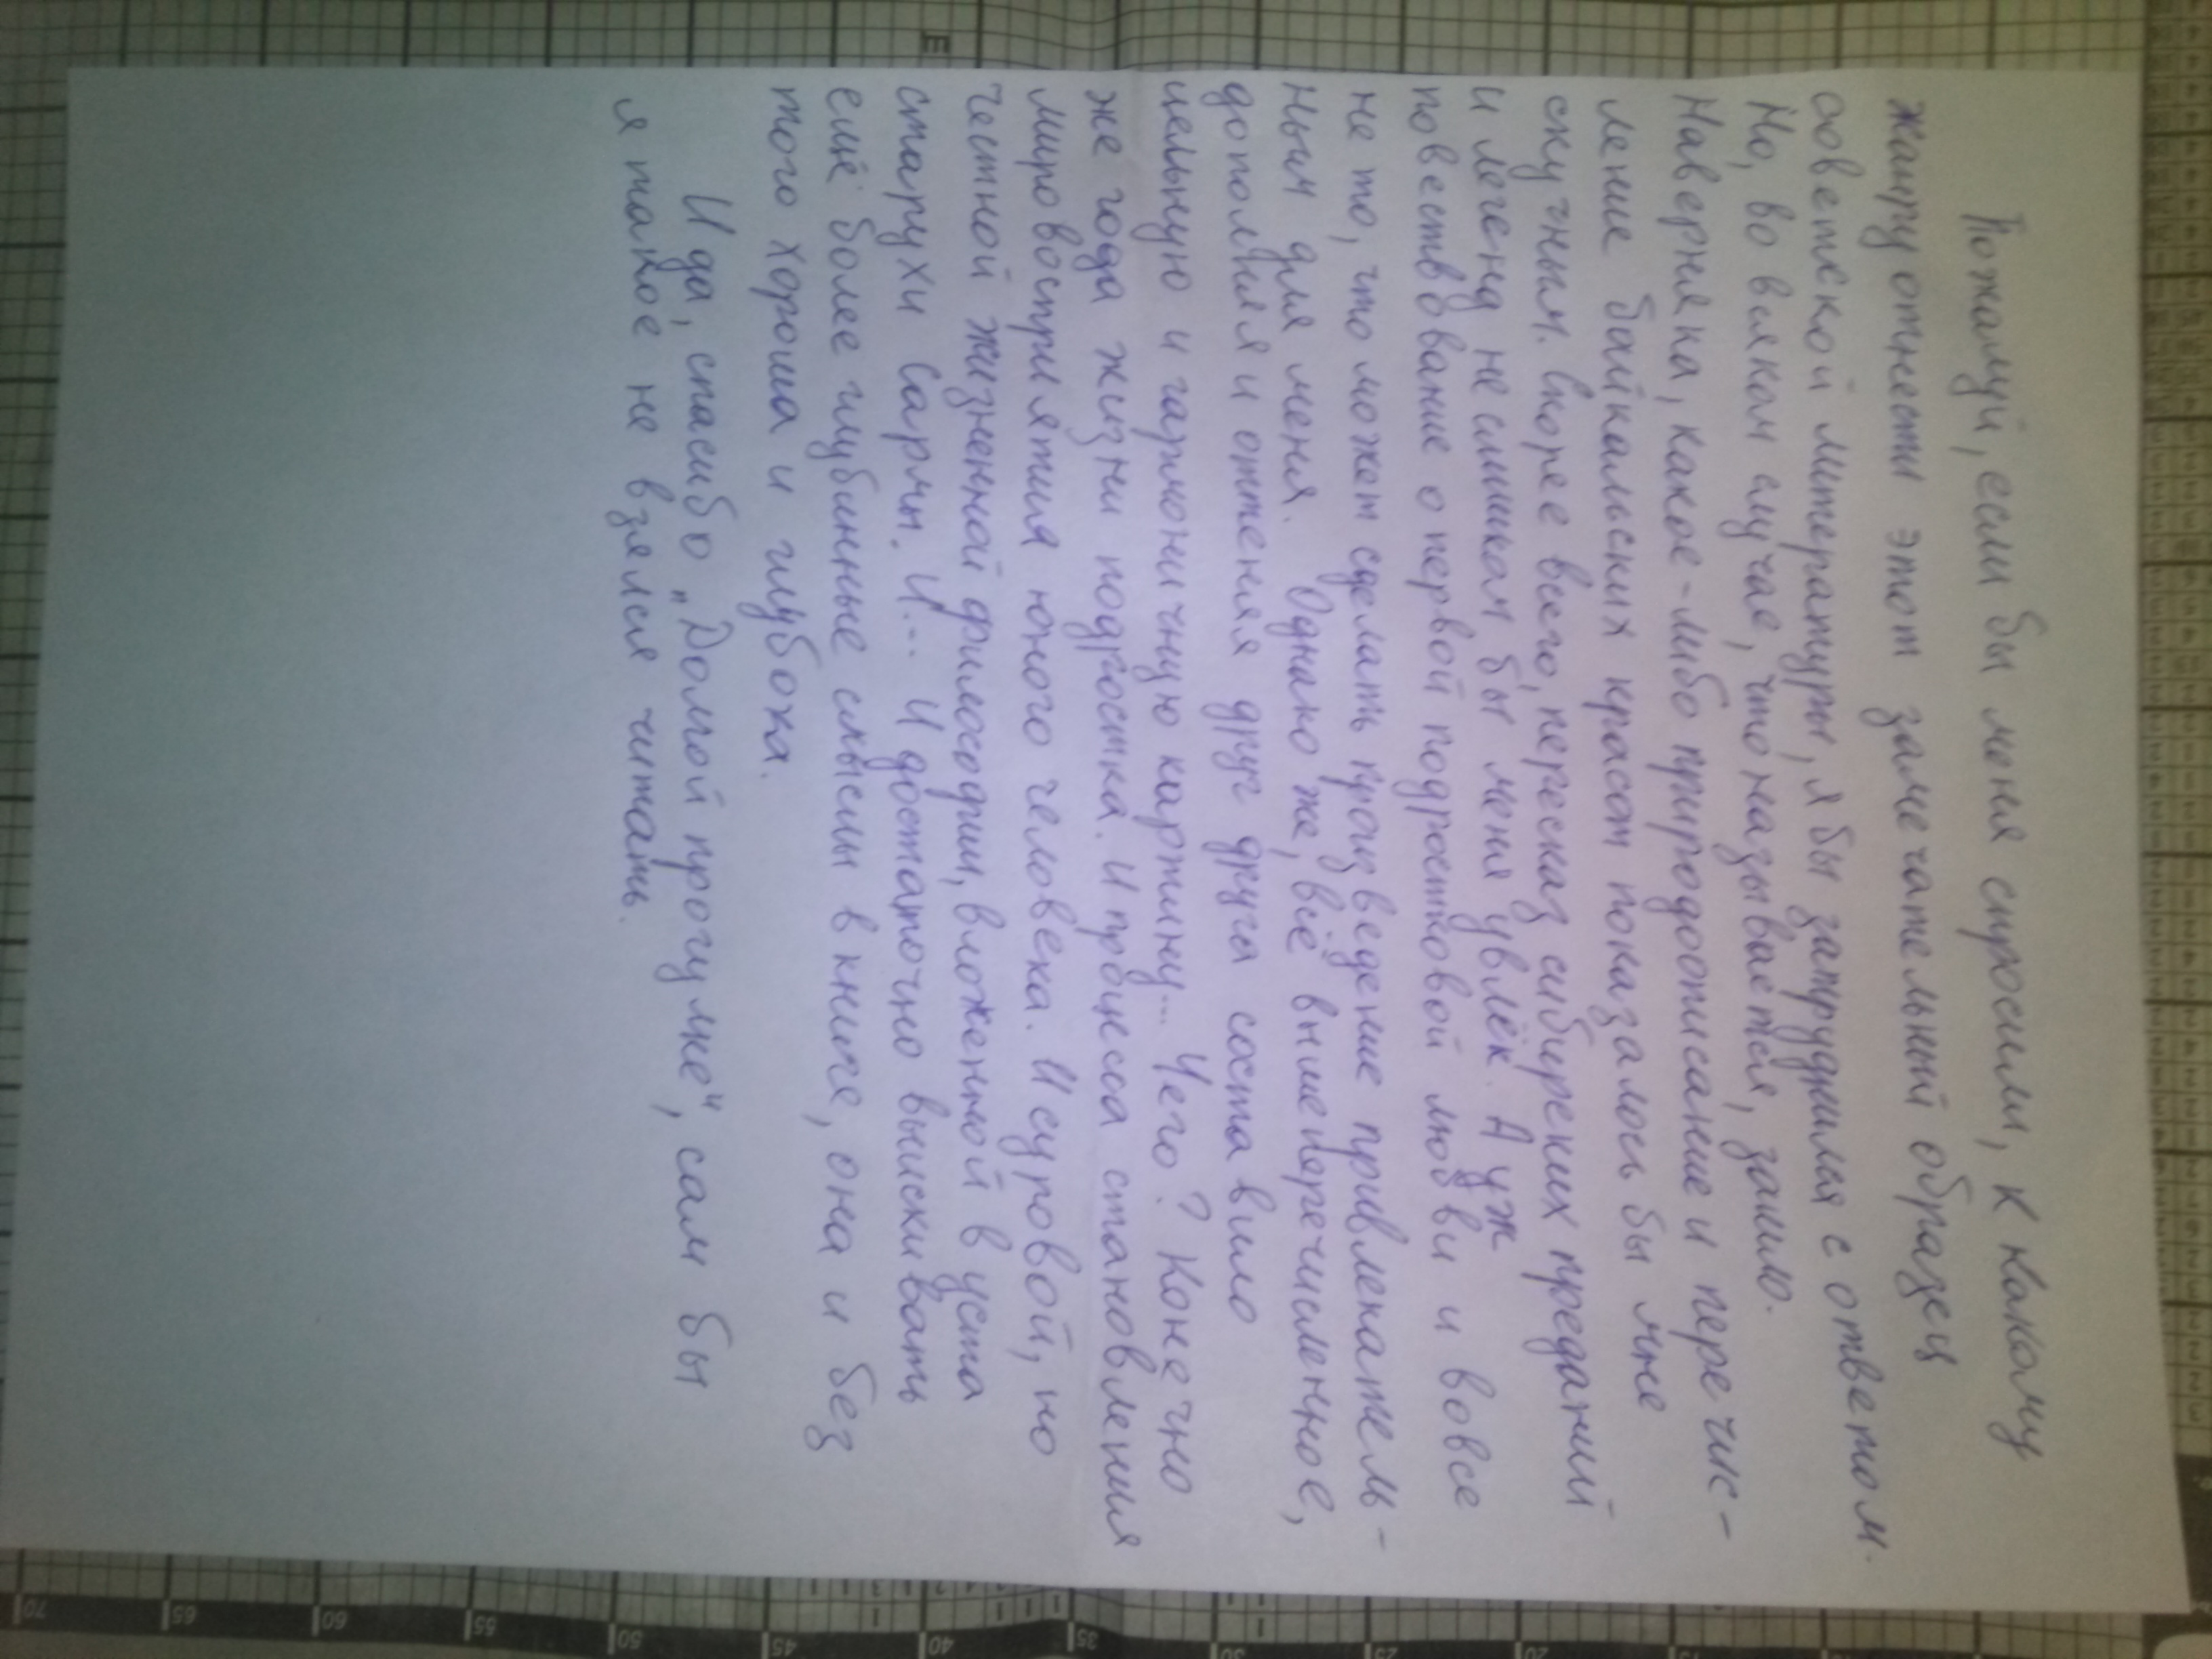 Пожалуй, если бы меня спросили, к какому
жанру отнести этот замечательный образец
советской литературы, я бы затруднился с ответом.
Но, во всяком случае, что называется, зашло.
Наверняка, какое-либо природоописание и перечис-
ление байкальских красот показалось бы мне
скучным. Скорее всего, пересказ сибирских преданий
и легенд не слишком бы меня увлёк. А уж
повествование о первой подростковой любви и вовсе
не то, что может сделать произведение привлекатель-
ным для меня. Однако же, всё вышеперечисленное,
дополняя и оттеняя друг друга составило
цельную и гармоничную картину... Чего? Конечно
же года жизни подростка. И процесса становления
мировосприятия юного человека. И суровой, но
честной жизненной философии, вложенной в уста
старухи Сармы. И... И достаточно выискивать
ещё более глубинные смыслы в книге, она и без
того хороша и глубока.
И да, спасибо „Долгой прогулке“, сам бы
я такое не взялся читать.
E
70
65
60
55
50
45
40
35
30
25
20